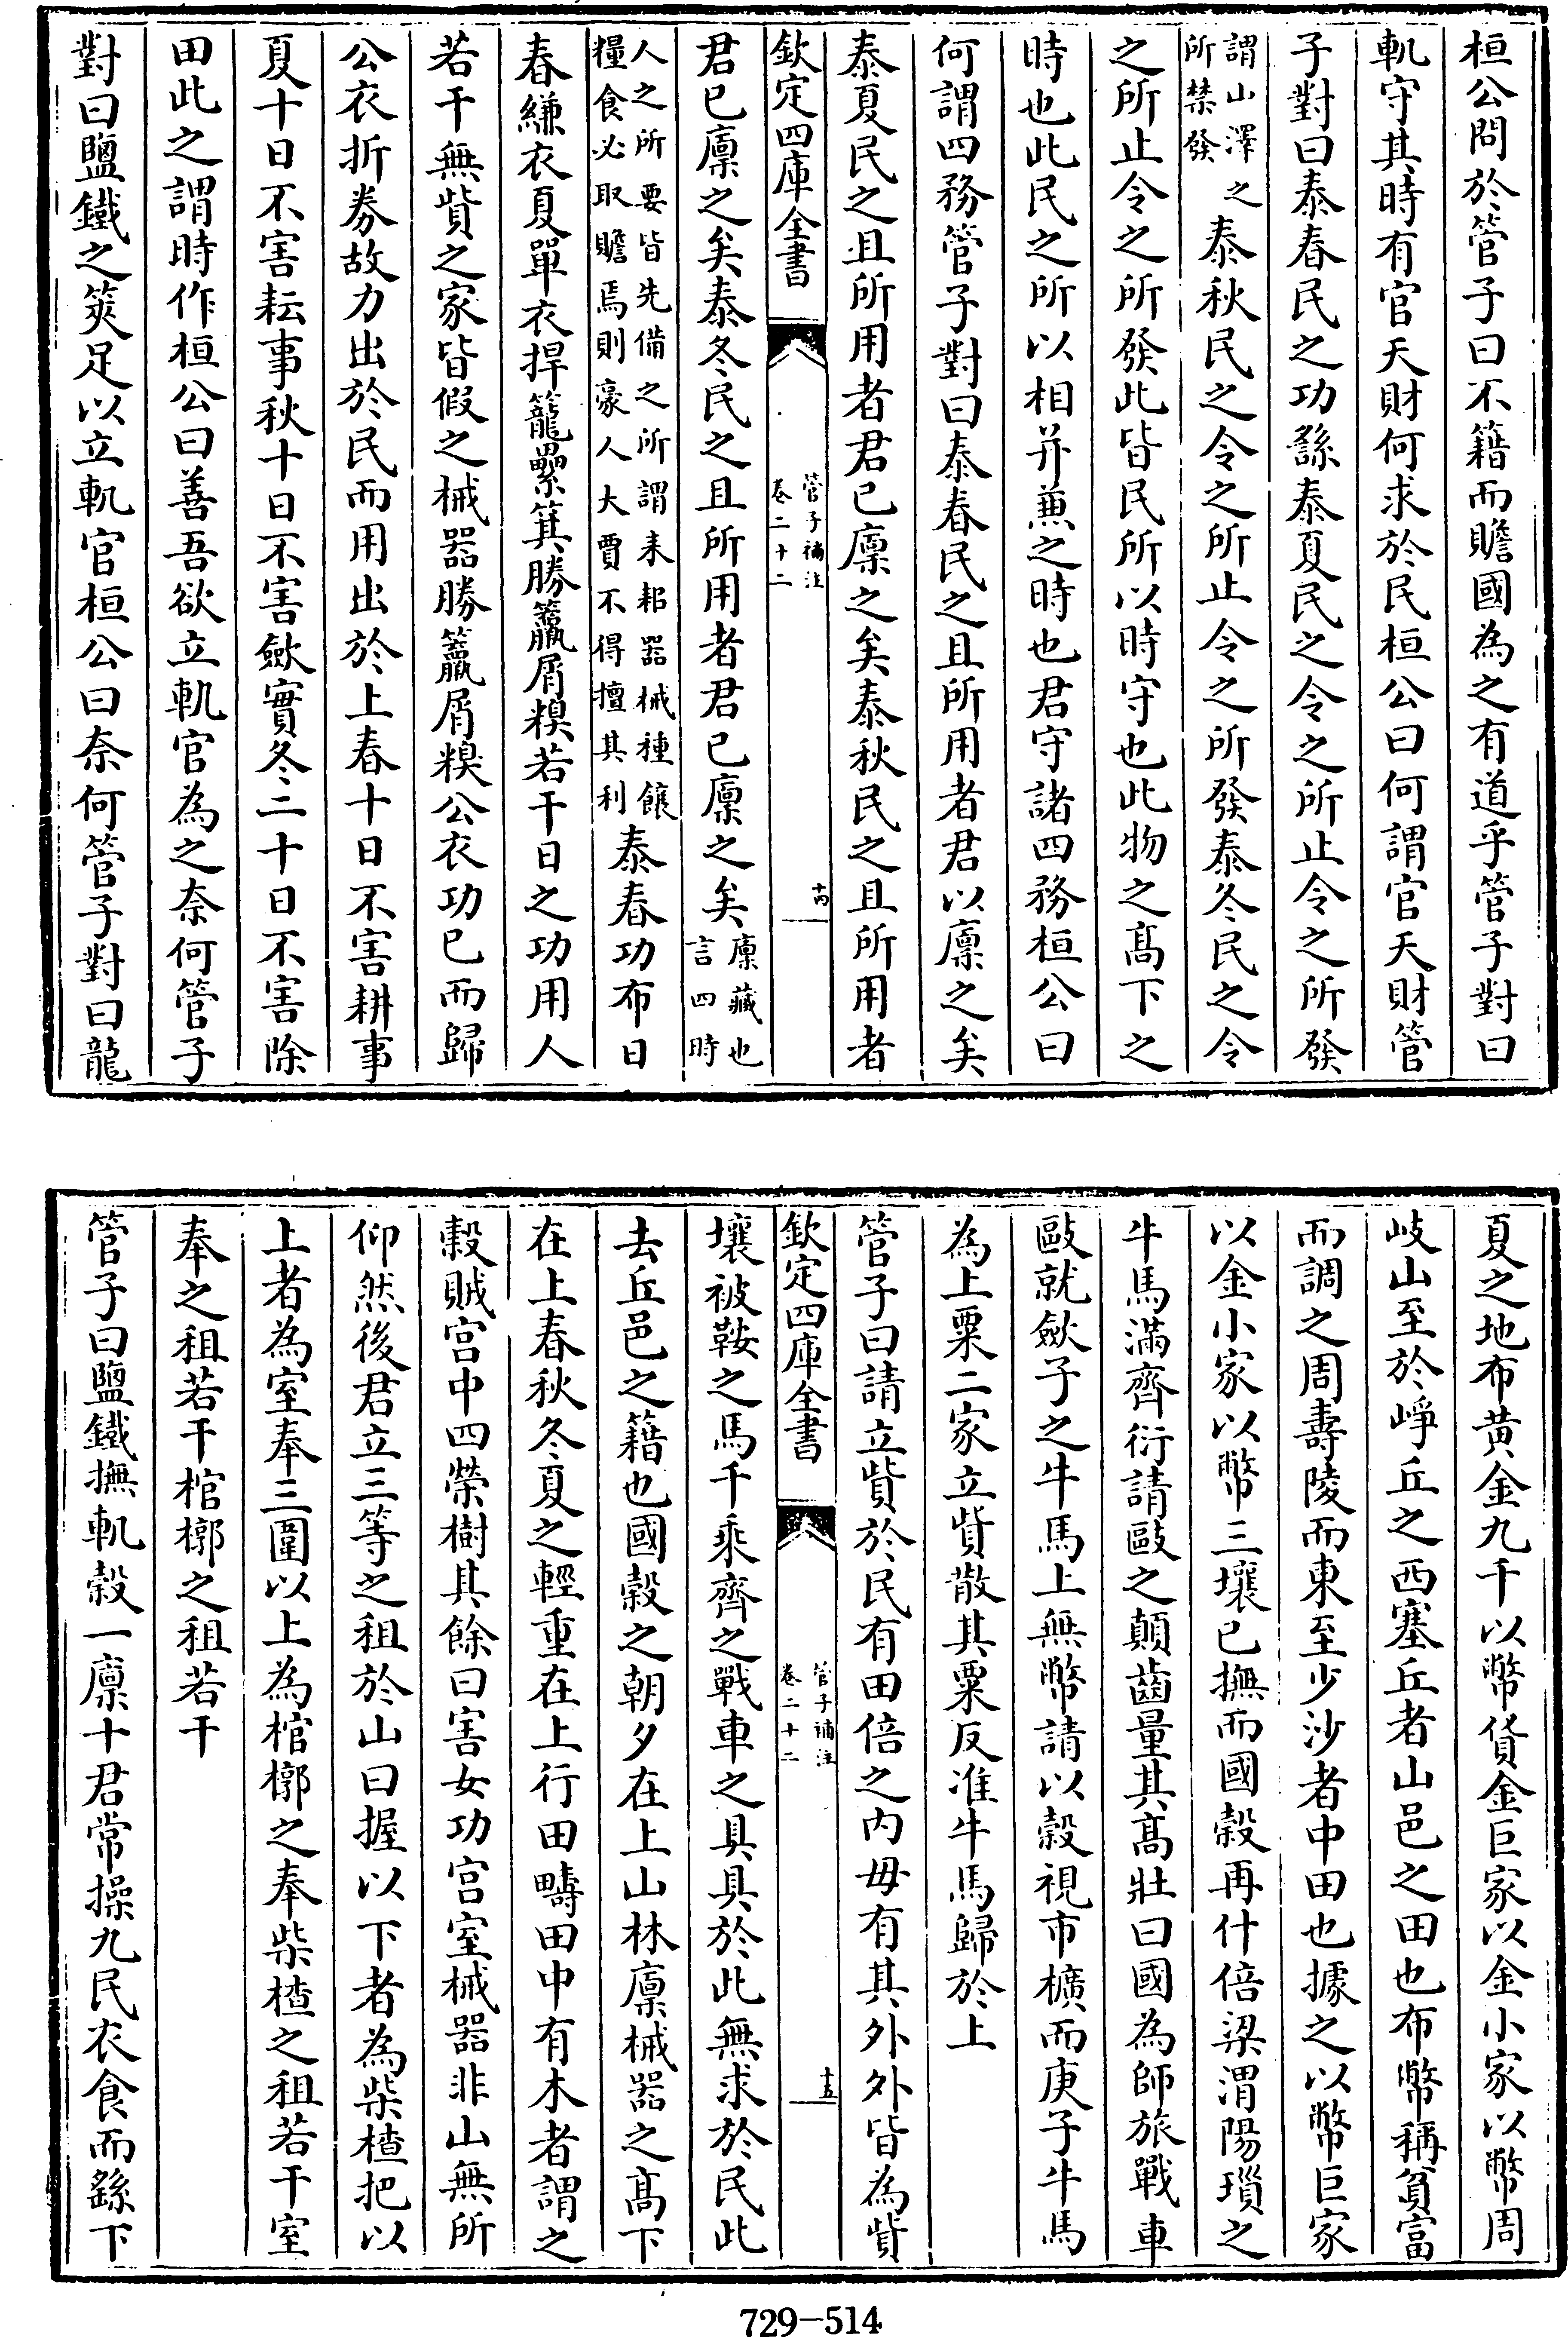 桓公問於管子曰不籍而贍國為之有道乎管子對曰
軌守其時有官天財何求於民桓公曰何謂官天財管
子對曰泰春民之功繇泰夏民之令之所止令之所發
謂山澤之所禁發泰秋民之令之所止令之所發泰冬民之令
之所止令之所發此皆民所以時守也此物之髙下之
時也此民之所以相并兼之時也君守諸四務桓公曰
何謂四務管子對曰泰春民之且所用者君以廩之矣
泰夏民之且所用者君已廩之矣泰秋民之且所用者
欽定四庫全書
管子補注
卷二十二
十四
君已廩之矣泰冬民之且所用者君已廩之矣廩藏也言四時
人之所要皆先備之所謂耒耜器械種饟糧食必取贍焉則豪人大賈不得擅其利泰春功布日
春縑衣夏單衣捍籠纍箕勝籯屑糗若干日之功用人
若干無貲之家皆假之械器勝籯屑糗公衣功已而歸
公衣折券故力出於民而用出於上春十日不害耕事
夏十日不害耘事秋十日不害歛實冬二十日不害除
田此之謂時作桓公曰善吾欲立軌官為之奈何管子
對曰鹽鐵之筴足以立軌官桓公曰奈何管子對曰龍
夏之地布黄金九千以幣貲金巨家以金小家以幣周
岐山至於崢丘之西塞丘者山邑之田也布幣稱貧富
而調之周壽陵而東至少沙者中田也據之以幣巨家
以金小家以幣三壤已撫而國穀再什倍梁渭陽瑣之
牛馬滿齊衍請敺之顛齒量其髙壯曰國為師旅戰車
敺就歛子之牛馬上無幣請以穀視市櫎而庚子牛馬
為上粟二家立貲散其粟反准牛馬歸於上
管子曰請立貲於民有田倍之内毋有其外外皆為貲
欽定四庫全書
管子補注
卷二十二
十五
壤被鞍之馬千乘齊之戰車之具具於此無求於民此
去丘邑之籍也國穀之朝夕在上山林廩械器之髙下
在上春秋冬夏之輕重在上行田疇田中有木者謂之
穀賊宫中四榮樹其餘曰害女功宫室械器非山無所
仰然後君立三等之租於山曰握以下者為柴楂把以
上者為室奉三圍以上為棺槨之奉柴楂之租若干室
奉之租若干棺槨之租若干
管子曰鹽鐵撫軌穀一廩十君常操九民衣食而繇下
729-514